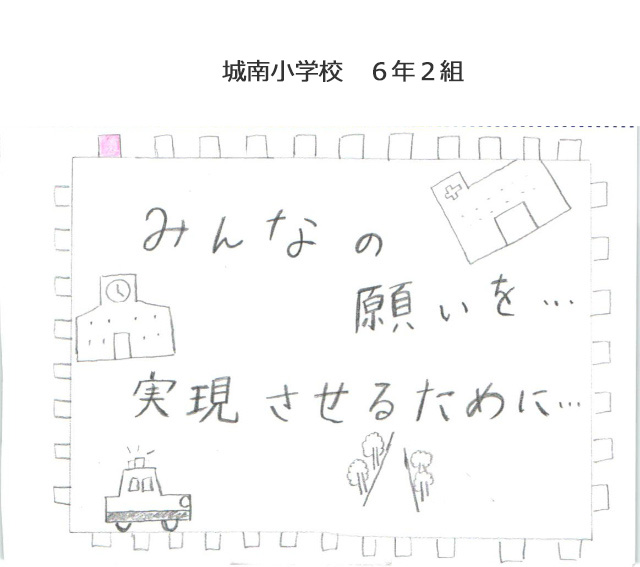 城南小学校　６年２組
みんなの
願いを…
実現させるために…